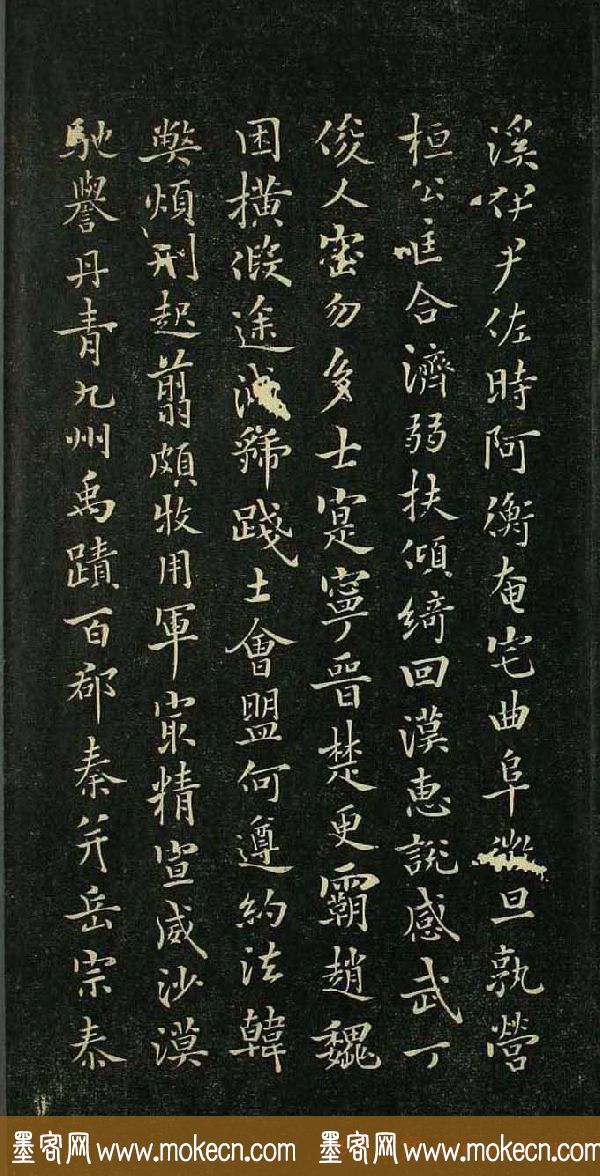 溪伊尹佐時阿衡奄宅曲阜微旦孰營
桓公匡合濟弱扶傾綺回漢惠說感武丁
俊乂密勿多士寔寧晉楚更霸趙魏
困橫假途滅虢踐土會盟何遵約法韓
弊煩刑起翦頗牧用軍最精宣威沙漠
馳譽丹青九州禹蹟百郡秦并岳宗泰
墨客网 www.mokecn.com 墨客网 www.mokecn.com